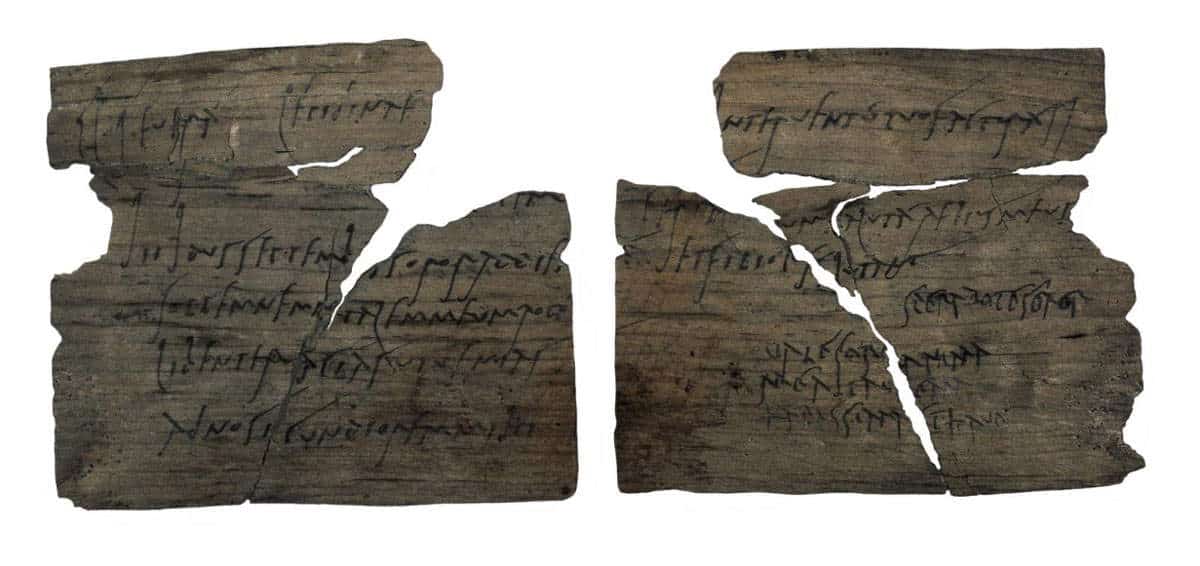 Cl Severa Lepidinae
iii Idus Septembres soror ad diem
sollemnem natalem meum rogo
libenter facias ut venias
ad nos iucundiorem mihi
interventu tuo factura si
tuum saluta Aelius meus
et filiolus salutant
sperabo te soror
vale soror anima
mea ita valeam
karissima et have